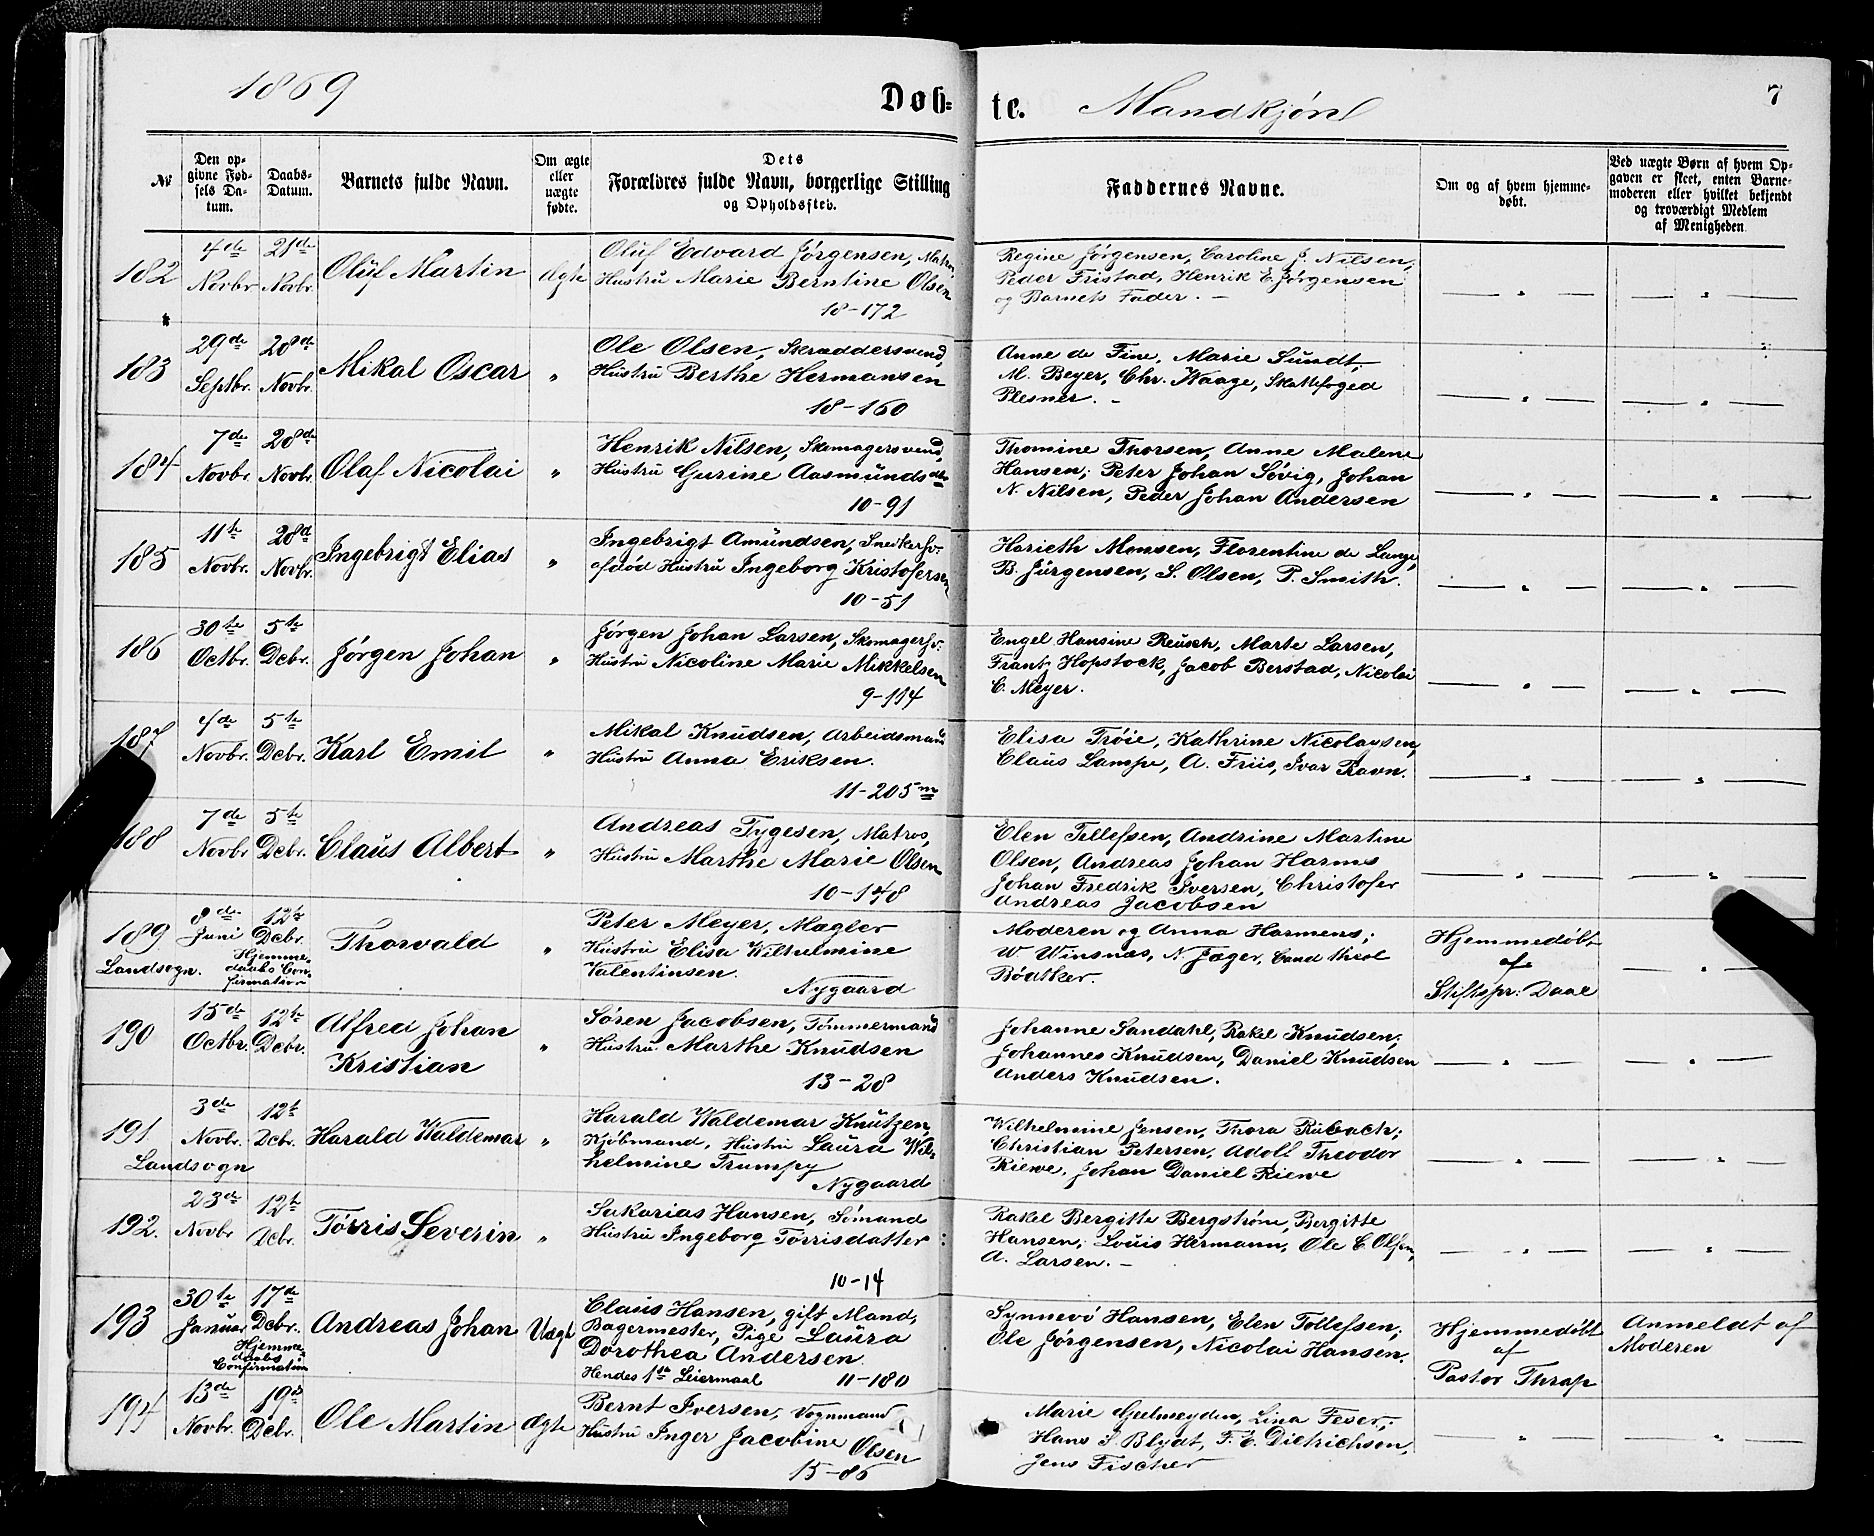 1869
Døb=
te.
Mandkjøn
7
№
Den op-
givne Fød-
sels Da-
tum.
Daabs-
Datum.
Barnets fulde Navn.
Om ægte
eller
uægte
fødte.
Dets
Forældres fulde Navn, borgerlige Stilling
og Opholdssted.
Faddernes Navne.
Om og af hvem hjemme-
døbt.
Ved uægte Børn af hvem Op-
gaven er skeet, enten Barne-
moderen eller hvilket bekjendt
og troværdigt Medlem
af Menigheden.
182
4de
Novbr
21de
Novbr.
Oluf Martin
Ægte
Oluf Edvard Jørgensen, Matros,
Hustru Marie Berntine Olsen
18-172
Regine Jørgensen, Caroline J. Nilsen,
Peder Fristad, Henrik E. Jørgensen
og Barnets Fader. -
183
29de
Septbr.
28de
Novbr.
Mikal Oscar
"
Ole Olsen, Skræddersvend,
Hustru Berthe Hermansen
18-160
Anne de Fine, Marie Sundt,
M. Beyer, Chr. Waage, Skattefoged
Plesner. -
184
7de
Novbr.
28de
Novbr.
Olaf Nicolai
"
Henrik Nilsen, Skomagersvend,
Hustru Gurine Aasmundsdtr
10-91
Thomine Thorsen, Anne Malene
Hansen; Peter Johan Søvig, Johan
N. Nilsen, Peder Johan Andersen
185
11te
Novbr.
28d
Novbr.
Ingebrigt Elias
"
Ingebrigt Amundsen, Snedkersv:
afdød Hustru Ingeborg Kristofersen
10-51
Harieth Monsen, Florentine de Lange,
B. Jürgensen, S. Olsen, P. Smith.
186
30te
Octbr.
5te
Dcbr.
Jørgen Johan
"
Jørgen Johan Larsen, Skomagersv:
Hustru Nicoline Marie Mikkelsen
9-114
Engel Hansine Reusch, Marte Larsen,
Frantz Hopstock, Jacob Berstad, Nicolai
C. Meyer.
187
4de
Novbr.
5te
Dcbr.
Karl Emil
"
Mikal Knudsen, Arbeidsmand
Hustru Anna Eriksen.
11-205m
Elisa Trøie, Kathrine Nicolaysen,
Claus Lampe, A. Friis, Ivar Ravn.
188
7de
Novbr
5te
Dcbr.
Claus Albert
"
Andreas Tygesen, Matros,
Hustru Marthe Marie Olsen
10-148
Elen Tellefsen, Andrine Martine
Olsen, Andreas Johan Harms
Johan Fredrik Iversen, Christofer
Andreas Jacobsen
189
Landsogn.
8de
Juni
12te
Dcbr.
Hjemme-
daabs Con-
firmation
Thorvald
"
Peter Meyer, Mægler
Hustru Elisa Wilhelmine
Valentinsen.
Nygaard
Moderen og Anna Harmens;
W Winsnæs, N. Jæger, Cand theol
Bødtker.
Hjemmedøbt
af
Stiftspr: Daae
190
15de
Octbr.
12te
Dcbr.
Alfred Johan
Kristian
"
Søren Jacobsen, Tømmermand
Hustru Marthe Knudsen
13-28
Johanne Sandahl, Rakel Knudsen,
Johannes Knudsen, Daniel Knudsen
Anders Knudsen.
191
Landsogn
3de
Novbr.
12t
Dcbr.
Harald Waldemar
"
Harald Waldemar Knutzen,
Kjøbmand, Hustru Laura Wil-
helmine Trumpy
Nygaard
Wilhelmine Jensen, Thora Rübach;
Christian Petersen, Adolf Theodor
Riewe, Johan Daniel Riewe
192.
23de
Novbr
12te
Dcbr.
Tørris Severin
"
Sakarias Hansen, Sømand
Hustru Ingeborg Tørrisdatter
10-14
Rakel Bergitte Bergstrøm, Bergitte
Hansen; Louis Hermann, Ole C. Olsen,
A. Larsen. -
193
30te
Januar
17de
Dcbr.
Hjemme-
daabs
Confirmation
Andreas Johan
Uægte
Claus Hansen, gift Mand,
Bagermester, Pige Laura
Dorothea Andersen.
Hendes 1ste Leiermaal
11-180
Synnevø Hansen, Elen Tollefsen;
Ole Jørgensen, Nicolai Hansen.
Hjemmedøbt
af
Pastor Thrap
Anmeldt af
Moderen
194
13de
Novbr.
19d
Dcbr.
Ole Martin
Ægte
Bernt Iversen, Vognmand
Hustru Inger Jacobine Olsen
15-86
Marie Gjelmeyden, Lina Feser;
Hans S. Blydt, F. E. Dietrichson,
Jens Fischer